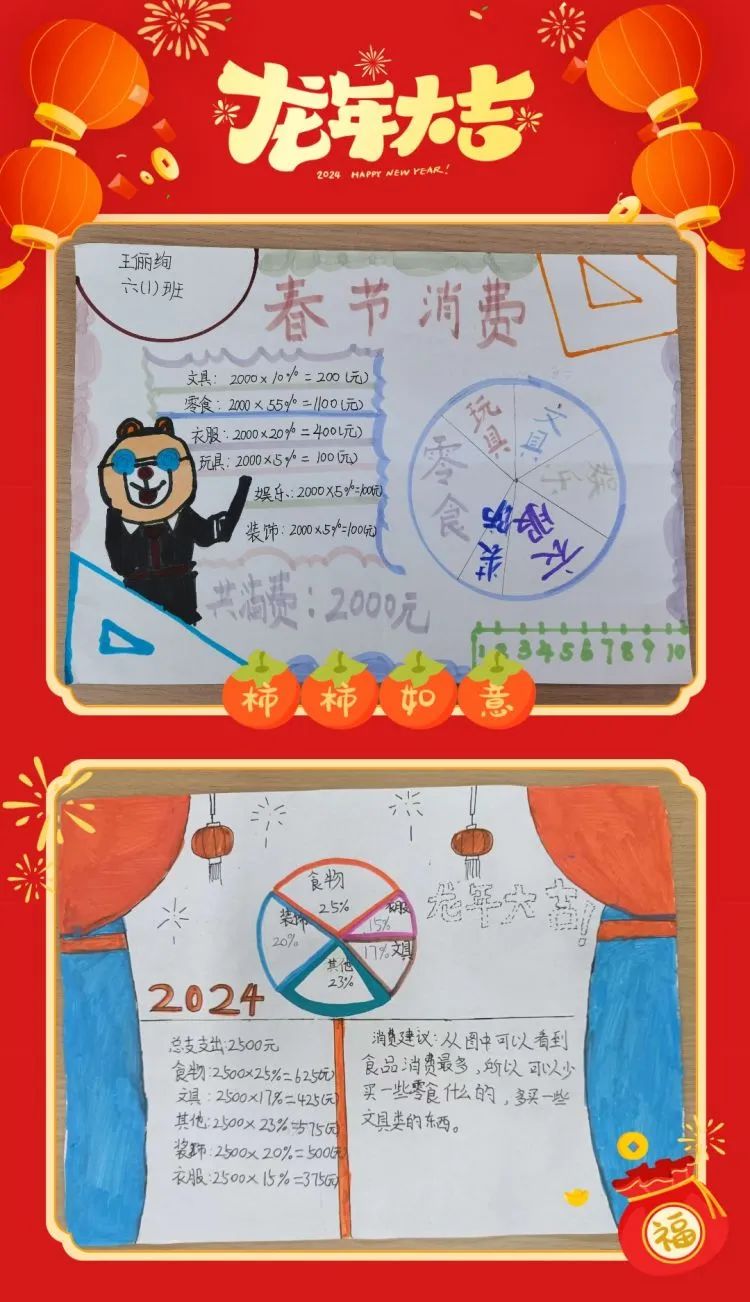 龙年大吉
2024 HAPPY NEW YEAR!
王俪绚
六(1)班
春节消费
文具: 2000×10%=200(元)
零食: 2000×55%=1100(元)
衣服: 2000×20%=400(元)
玩具: 2000×5%=100(元)
娱乐: 2000×5%=100(元)
装饰: 2000×5%=100(元)
共消费: 2000元
玩具
文具
零食
娱乐
装饰
衣服
1 2 3 4 5 6 7 8 9 10
柿柿如意
食物
25%
衣服
15%
装饰
20%
17% 文具
其他
23%
龙年大吉!
2024
总支支出:2500元
食物:2500×25%=625(元)
文具:2500×17%=425(元)
其他:2500×23%=575(元)
装饰:2500×20%=500(元)
衣服:2500×15%=375(元)
消费建议:从图中可以看到
食品消费最多,所以可以少
买一些零食什么的,多买一些
文具类的东西。
福